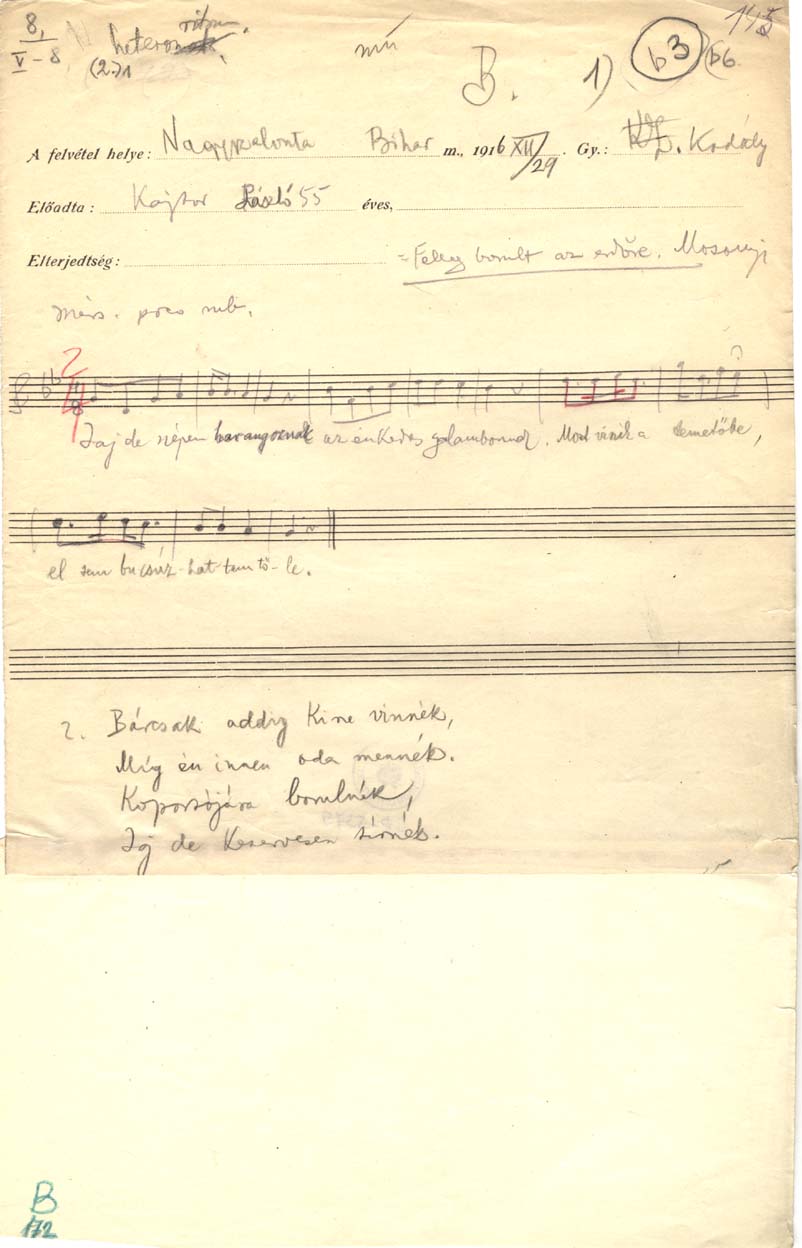 8,
V - 8
ritm.
heteron
(2.)1
mű
B. 1)
b3
b6
145
A felvétel helye: Nagyszalonta Bihar m., 1916 XII/29. Gy.: Kodály
Előadta: Kajtor László 55 éves,
Elterjedtség: = Felleg borult az erdőre. Mosonyi
Mérs. poco rub.
2
4
Jaj de szépen harangoznak az én kedves galambomnak. Most viszik a temetőbe,
el sem búcsúz-hat-tam tő-le.
2. Bárcsak addig ki ne vinnék,
Míg én innen oda mennék.
Koporsójára borulnék,
Jaj de keservesen sírnék.
B
172